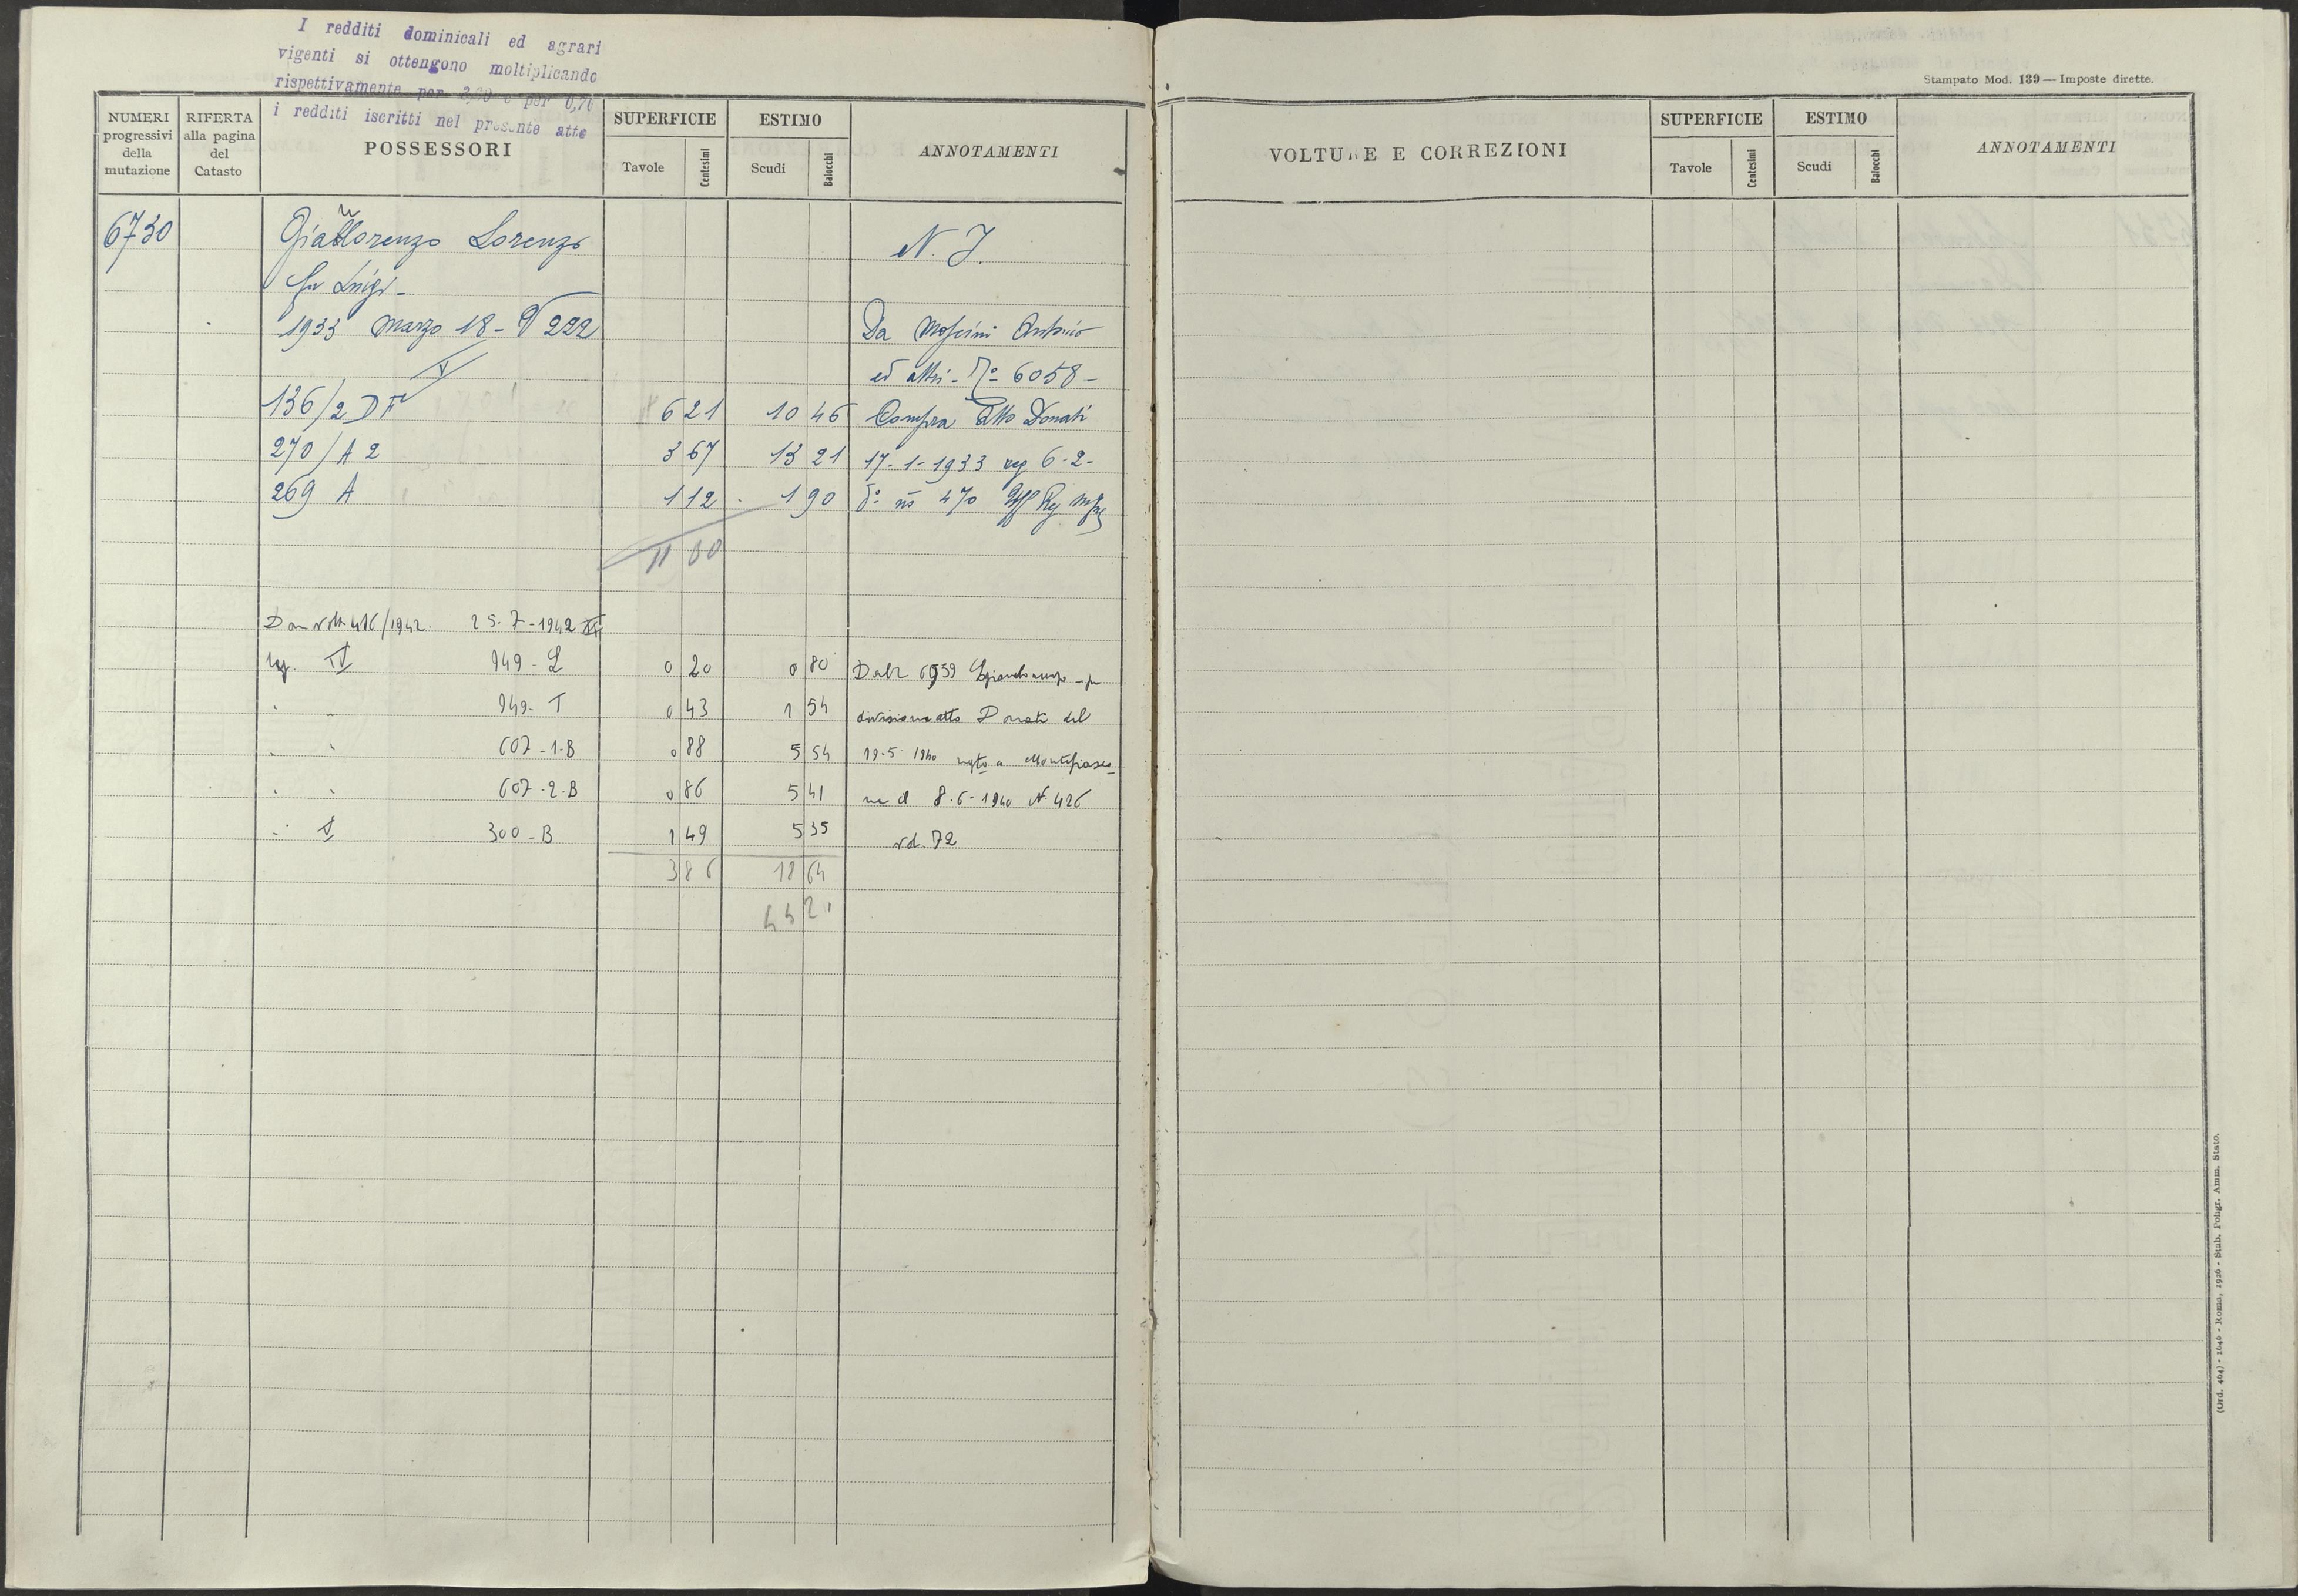 I redditi dominicali ed agrari
vigenti si ottengono moltiplicando
rispettivamente per e per 0,70
i redditi iscritti nel presente atto
Stampato Mod. 139 — Imposte dirette.
NUMERI progressivi della mutazione
RIFERTA alla pagina del Catasto
POSSESSORI
SUPERFICIE
Tavole
Centesimi
ESTIMO
Scudi
Baiocchi
ANNOTAMENTI
VOLTURE E CORREZIONI
SUPERFICIE
Tavole
Centesimi
ESTIMO
Scudi
Baiocchi
ANNOTAMENTI
6730 Lorenzo N. I.
fu Luigi -
1933 marzo 18 - V 222 Da Antonio
ed altri - No 6058 -
V
136/2 D 6 21 10 46 Compra Atto Donati
270/A 2 3 67 13 21 17-1-1933 reg 6-2-
269 A 1 12 1 90 do no 470 Uff Reg
11 00
416/1942. 25-7-1942
IV 949 - L 0 20 0 80 Dalla
" " 949 - T 0 43 1 54 divisione atto Donati del
" " 607 - 1 - B 0 88 5 54 19-5-1940 a Montefiasco
" " 607 - 2 - B 0 86 5 41 ne il 8-6-1940 N. 426
" V 300 - B 1 49 5 35 vol. 72
3 86 18 64
44 21
(Ord. 404) - 1646 - Roma, 1926 - Stab. Poligr. Amm. Stato.